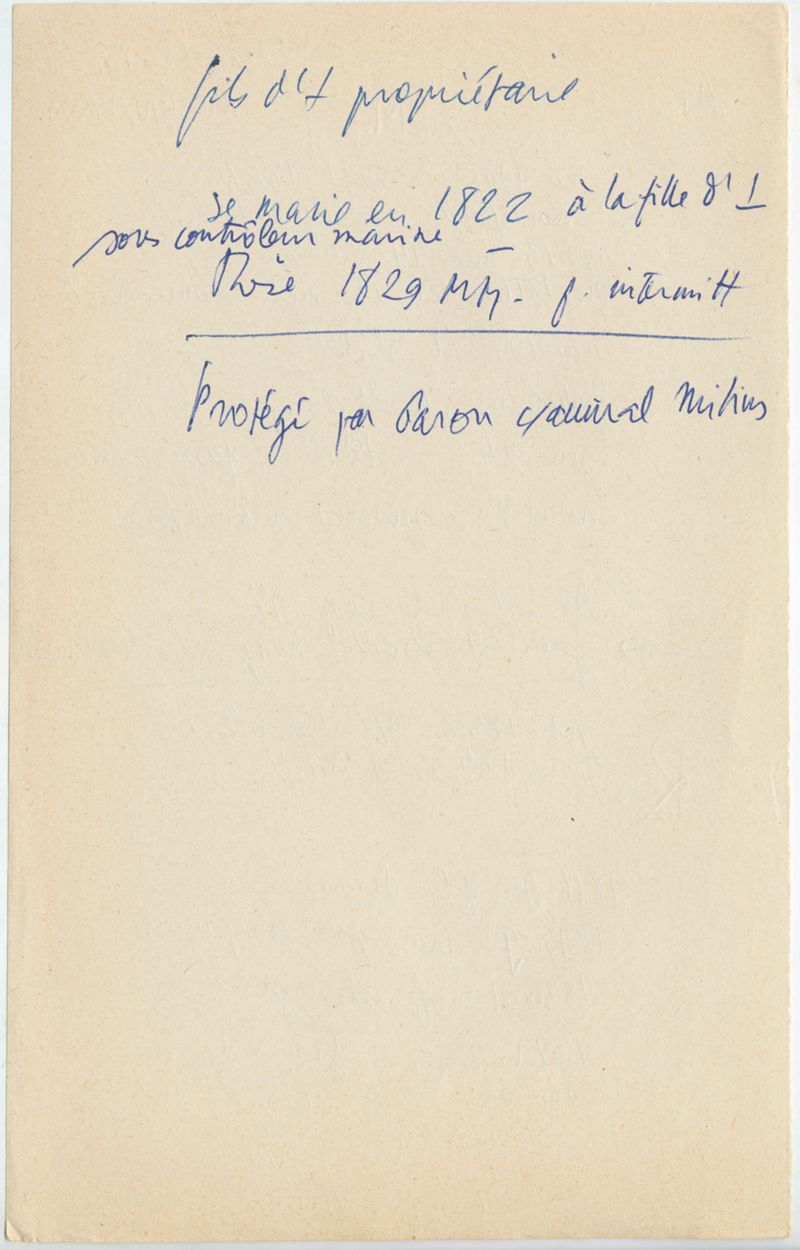 fils d'1 propriétaire
se marie en 1822 à la fille d'1
sous contrôleur marine
Thèse 1829 Mtp. f. intermitt
Protégé par baron c/amiral Milius